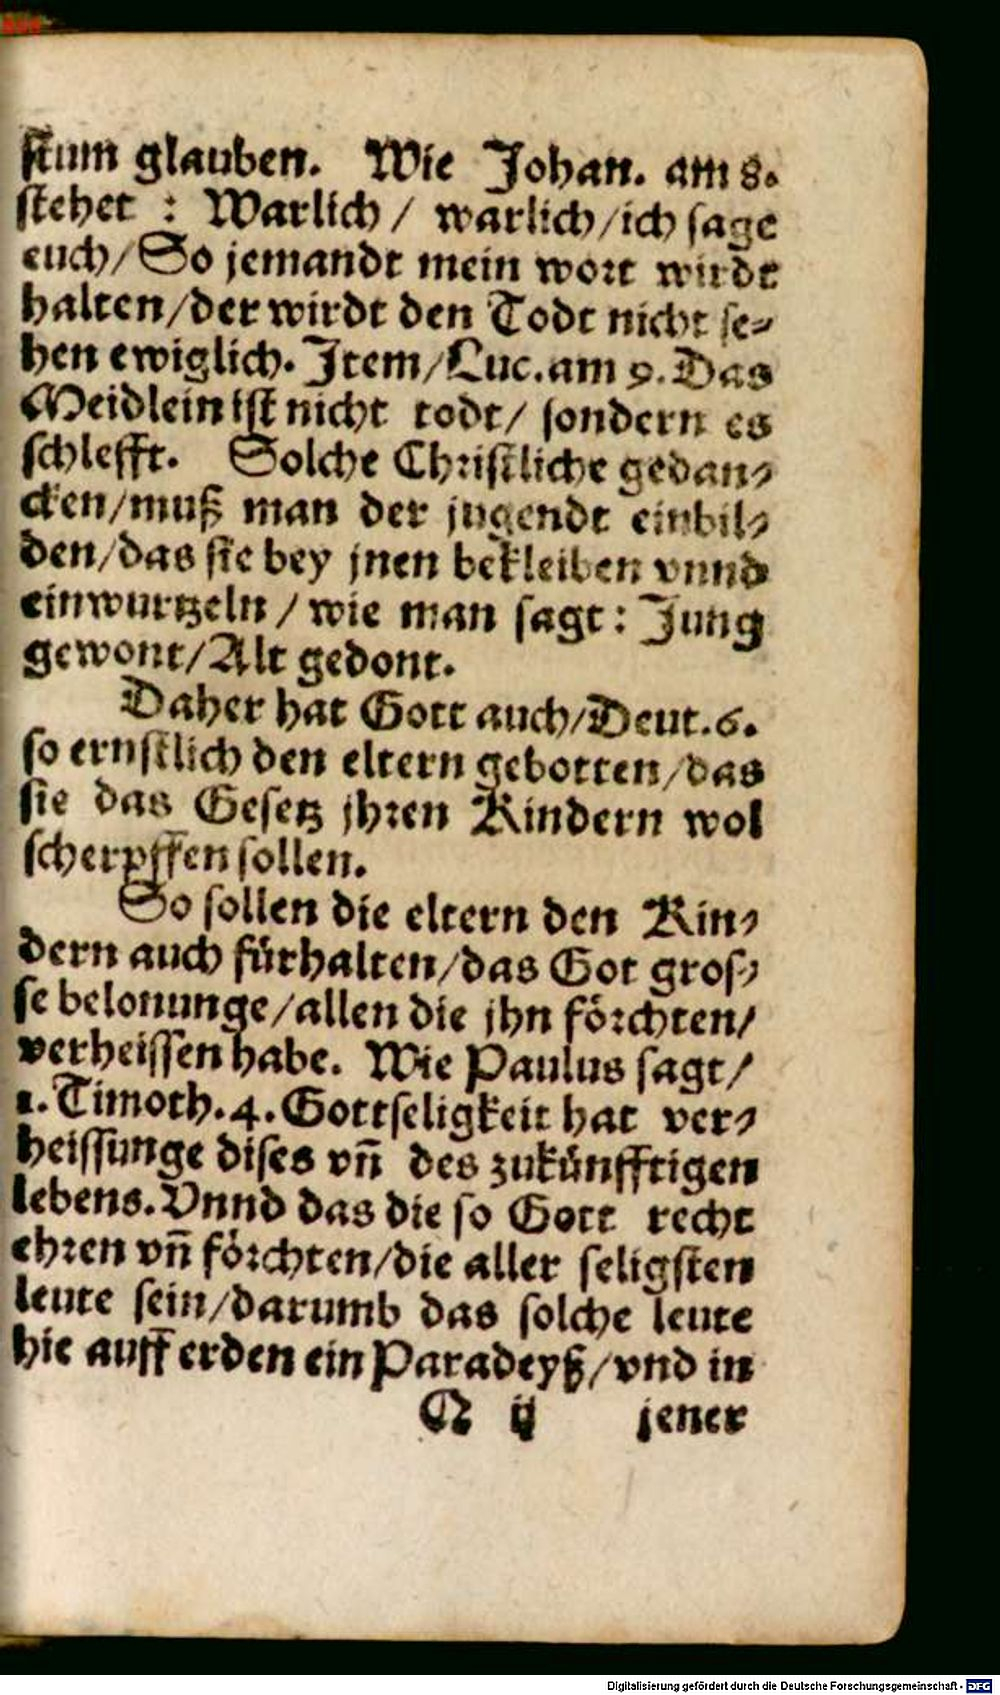 stum glauben. Wie Johan. am 8.
stehet : Warlich / warlich/ich sage
euch/So jemandt mein wort wirdt
halten/der wirdt den Todt nicht se-
hen ewiglich. Item/Luc. am 9. Das
Meidlein ist nicht todt/ sondern es
schlefft. Solche Christliche gedan-
cken/muß man der jugendt einbil-
den/das sie bey jnen bekleiben vnnd
einwurtzeln / wie man sagt : Jung
gewont/Alt gedont.
Daher hat Gott auch/Deut. 6.
so ernstlich den eltern gebotten/das
sie das Gesetz jhren Kindern wol
scherpffen sollen.
So sollen die eltern den Kin-
dern auch fürhalten/das Got gros-
se belonunge/allen die jhn förchten/
verheissen habe. Wie Paulus sagt/
1. Timoth. 4. Gottseligkeit hat ver-
heissunge dises vñ des zukünfftigen
lebens. Vnnd das die so Gott recht
ehren vñ förchten/die aller seligsten
leute sein/darumb das solche leute
hie auff erden ein Paradeyß/vnd in
N ij jener
Digitalisierung gefördert durch die Deutsche Forschungsgemeinschaft - DFG